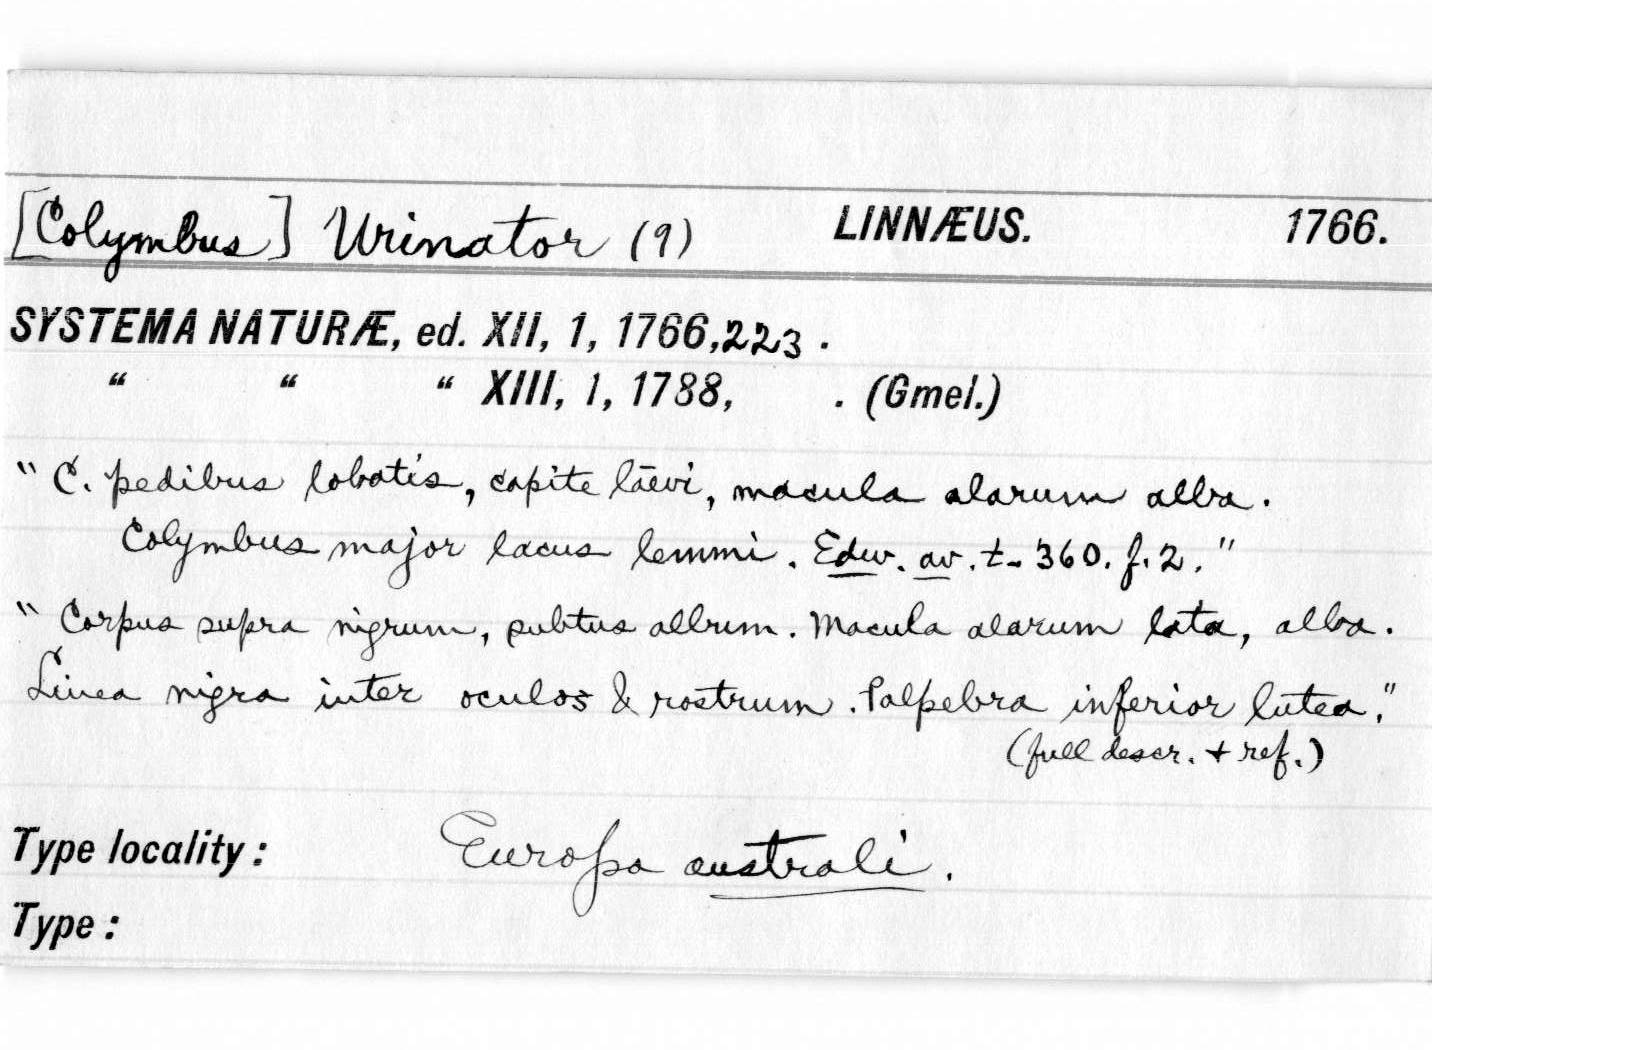 [Colymbus] Urinator (9) LINNÆUS. 1766.
SYSTEMA NATURÆ, ed. XII, 1, 1766, 223.
“ “ “ XIII, 1, 1788, . (Gmel.)
"C. pedibus lobatis, capite lævi, macula alarum alba.
Colymbus major lacus lemmi. Edw. av. t. 360. f. 2."
"Corpus supra nigrum, subtus album. Macula alarum lata, alba.
Linea nigra inter oculos & rostrum. Palpebra inferior lutea."
(full descr. + ref.)
Type locality: Europa australi.
Type: